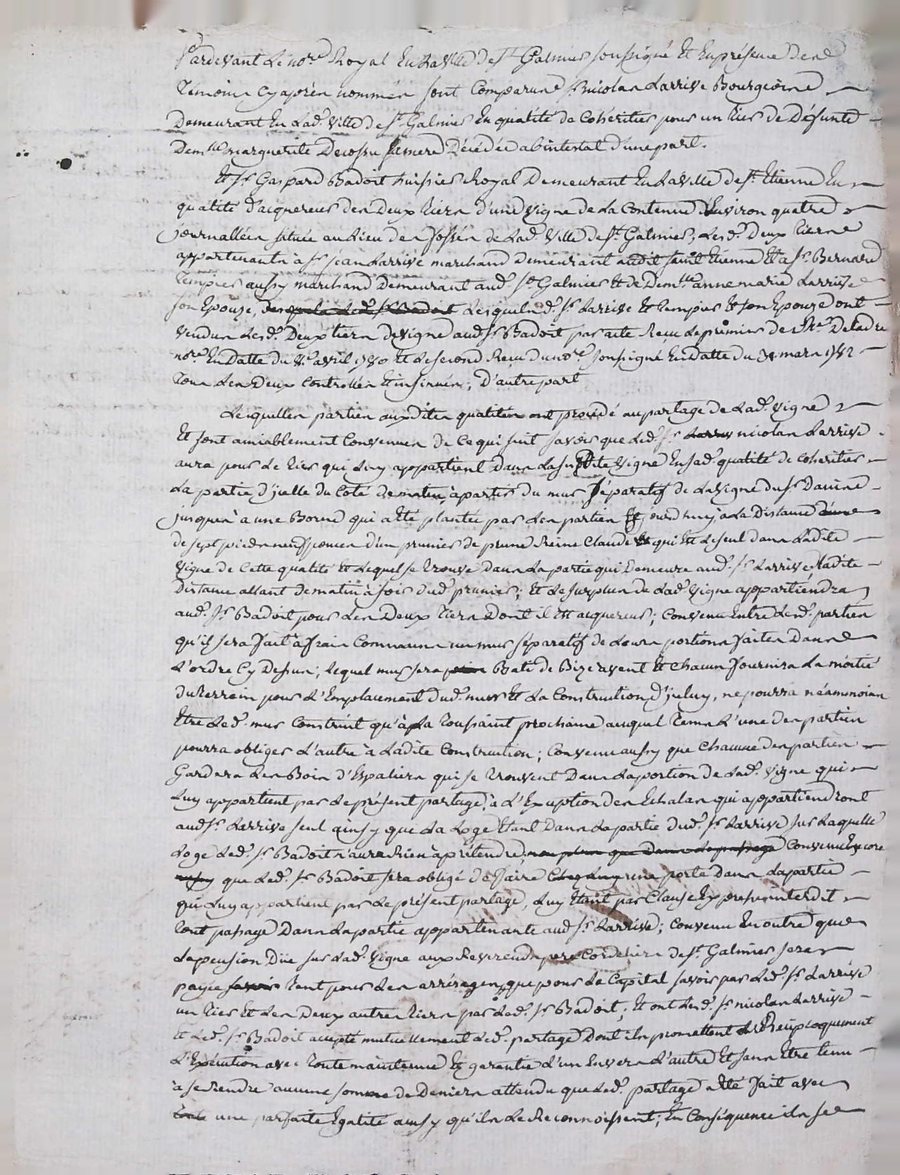 Pardevant Le no.re Royal En La Ville de S.t Galmier soussigné Et En présence des
Temoins Cy après nommés sont Comparuns S.r Nicolas Larrive Bourgeois
Demeurant En Lad. Ville de S.t Galmier En qualité de Cohéritier pour un tiers de Défunte
Dem.lle Marguerite Decossu sa mere Décédée abintestat d'une part.
Et S.r Gaspard Badoit huissier Royal Demeurant En La Ville de S.t Etienne En
qualité d'aquereur des Deux tiers d'une Vigne de La Contenue D'Environ quatre
journallées située au Lieu des fossés de Lad. Ville de S.t Galmier, Lesd. Deux tiers
appartenants a S.r Jean Larrive marchand Demeurant audit Saint Etienne Et a S.r Bernard
Tempier aussy marchand Demeurant aud. S.t Galmier Et de Dem.lle anne marie Larrive
son Epouse, desquels Led. S.r Badoit Lesquels d. S.rs Larrive Et Tempier Et son Epouse ont
vendus Lesd. Deux tiers de Vigne aud. S.r Badoit par acte Reçu Le premier de M.e
no.re En Datte du avril 1780 Et Le second Reçu du no.re soussigné En datte du mars 1782
Tous Les Deux Controllés Et insinués, D'autre part
Lesquelles parties auxdites qualités ont procédé au partage de Lad. Vigne
Et sont amiablement Convenues de Ce qui suit savoir que Led. S.r Larrive nicolas Larrive
aura pour Le tiers qui Luy appartient Dans La susdite Vigne En sad. qualité de Cohéritier
La partie d'icelle du Coté de matin à partir du mur Séparatif de La Vigne du S.r
jusques à une Borne qui a Eté plantée par Les parties Et jourd'huy a La Distance d'une
de sept pieds neuf pouces d'un prunier de prune Reine Claude qui Est Le seul dans Ladite
Vigne de Cette qualité Et Lequel se trouve Dans La partie qui Demeure aud. S.r Larrive Ladite
Distance allant de matin à soir dud. prunier; Et Le surplus de Lad. Vigne appartiendra
aud. S.r Badoit pour Les Deux tiers Dont il Est aquereur; Convenu Entre Lesd. parties
qu'il sera fait à frais Communs un mur séparatif de Leurs portions faites Dans
L'ordre Cy Dessus; Lequel mur sera Bati de Bize a vent Et Chacun fournira La moitié
du terrein pour L'Emplacement dud. mur Et La Construction d'iceluy, ne pourra néammoins
Etre Led. mur Construit qu'à La Toussaint prochaine auquel Tems L'une des parties
pourra obliger L'autre à Ladite Construction; Convenu aussy que Chacune des parties
Gardera Les Bois d'Espaliers qui se trouvent Dans La portion de Lad. Vigne qui
Luy appartient par Le présent partage, à L'Exception des Echalas qui appartiendront
aud. S.r Larrive seul ainsy que La Loge Etant Dans La partie dud. S.r Larrive sur Laquelle
Loge Led. S.r Badoit n'aura Rien à prétendre non plus que Dans Le passage Convenu Encore
que Led. S.r Badoit sera obligé de faire une porte Dans La partie
qui Luy appartient par Le présent partage, Luy Etant par Clause Expresse interdit
Tout passage Dans La partie appartenante aud. S.r Larrive; Convenu En outre que
La pension Düe sur Lad. Vigne aux Reverends pere Cordeliers de S.t Galmier sera
payée savoir Tant pour Les arrérages que pour Le Capital savoir par Led. S.r Larrive
un tiers Et Les Deux autres tiers par Led. S.r Badoit; Et ont Led. S.r nicolas Larrive
Et Led. S.r Badoit accepté mutuellement Led. partage Dont ils promettent Réciproquement
L'Exécution avec Toute maintenue Et garentie L'un Envers L'autre Et sans Etre tenu
a se Rendre aucune somme de Deniers attendu que Led. partage a Eté fait avec
une parfaite Egalité ainsy qu'ils Le Reconnoissent; En Conséquence ils se